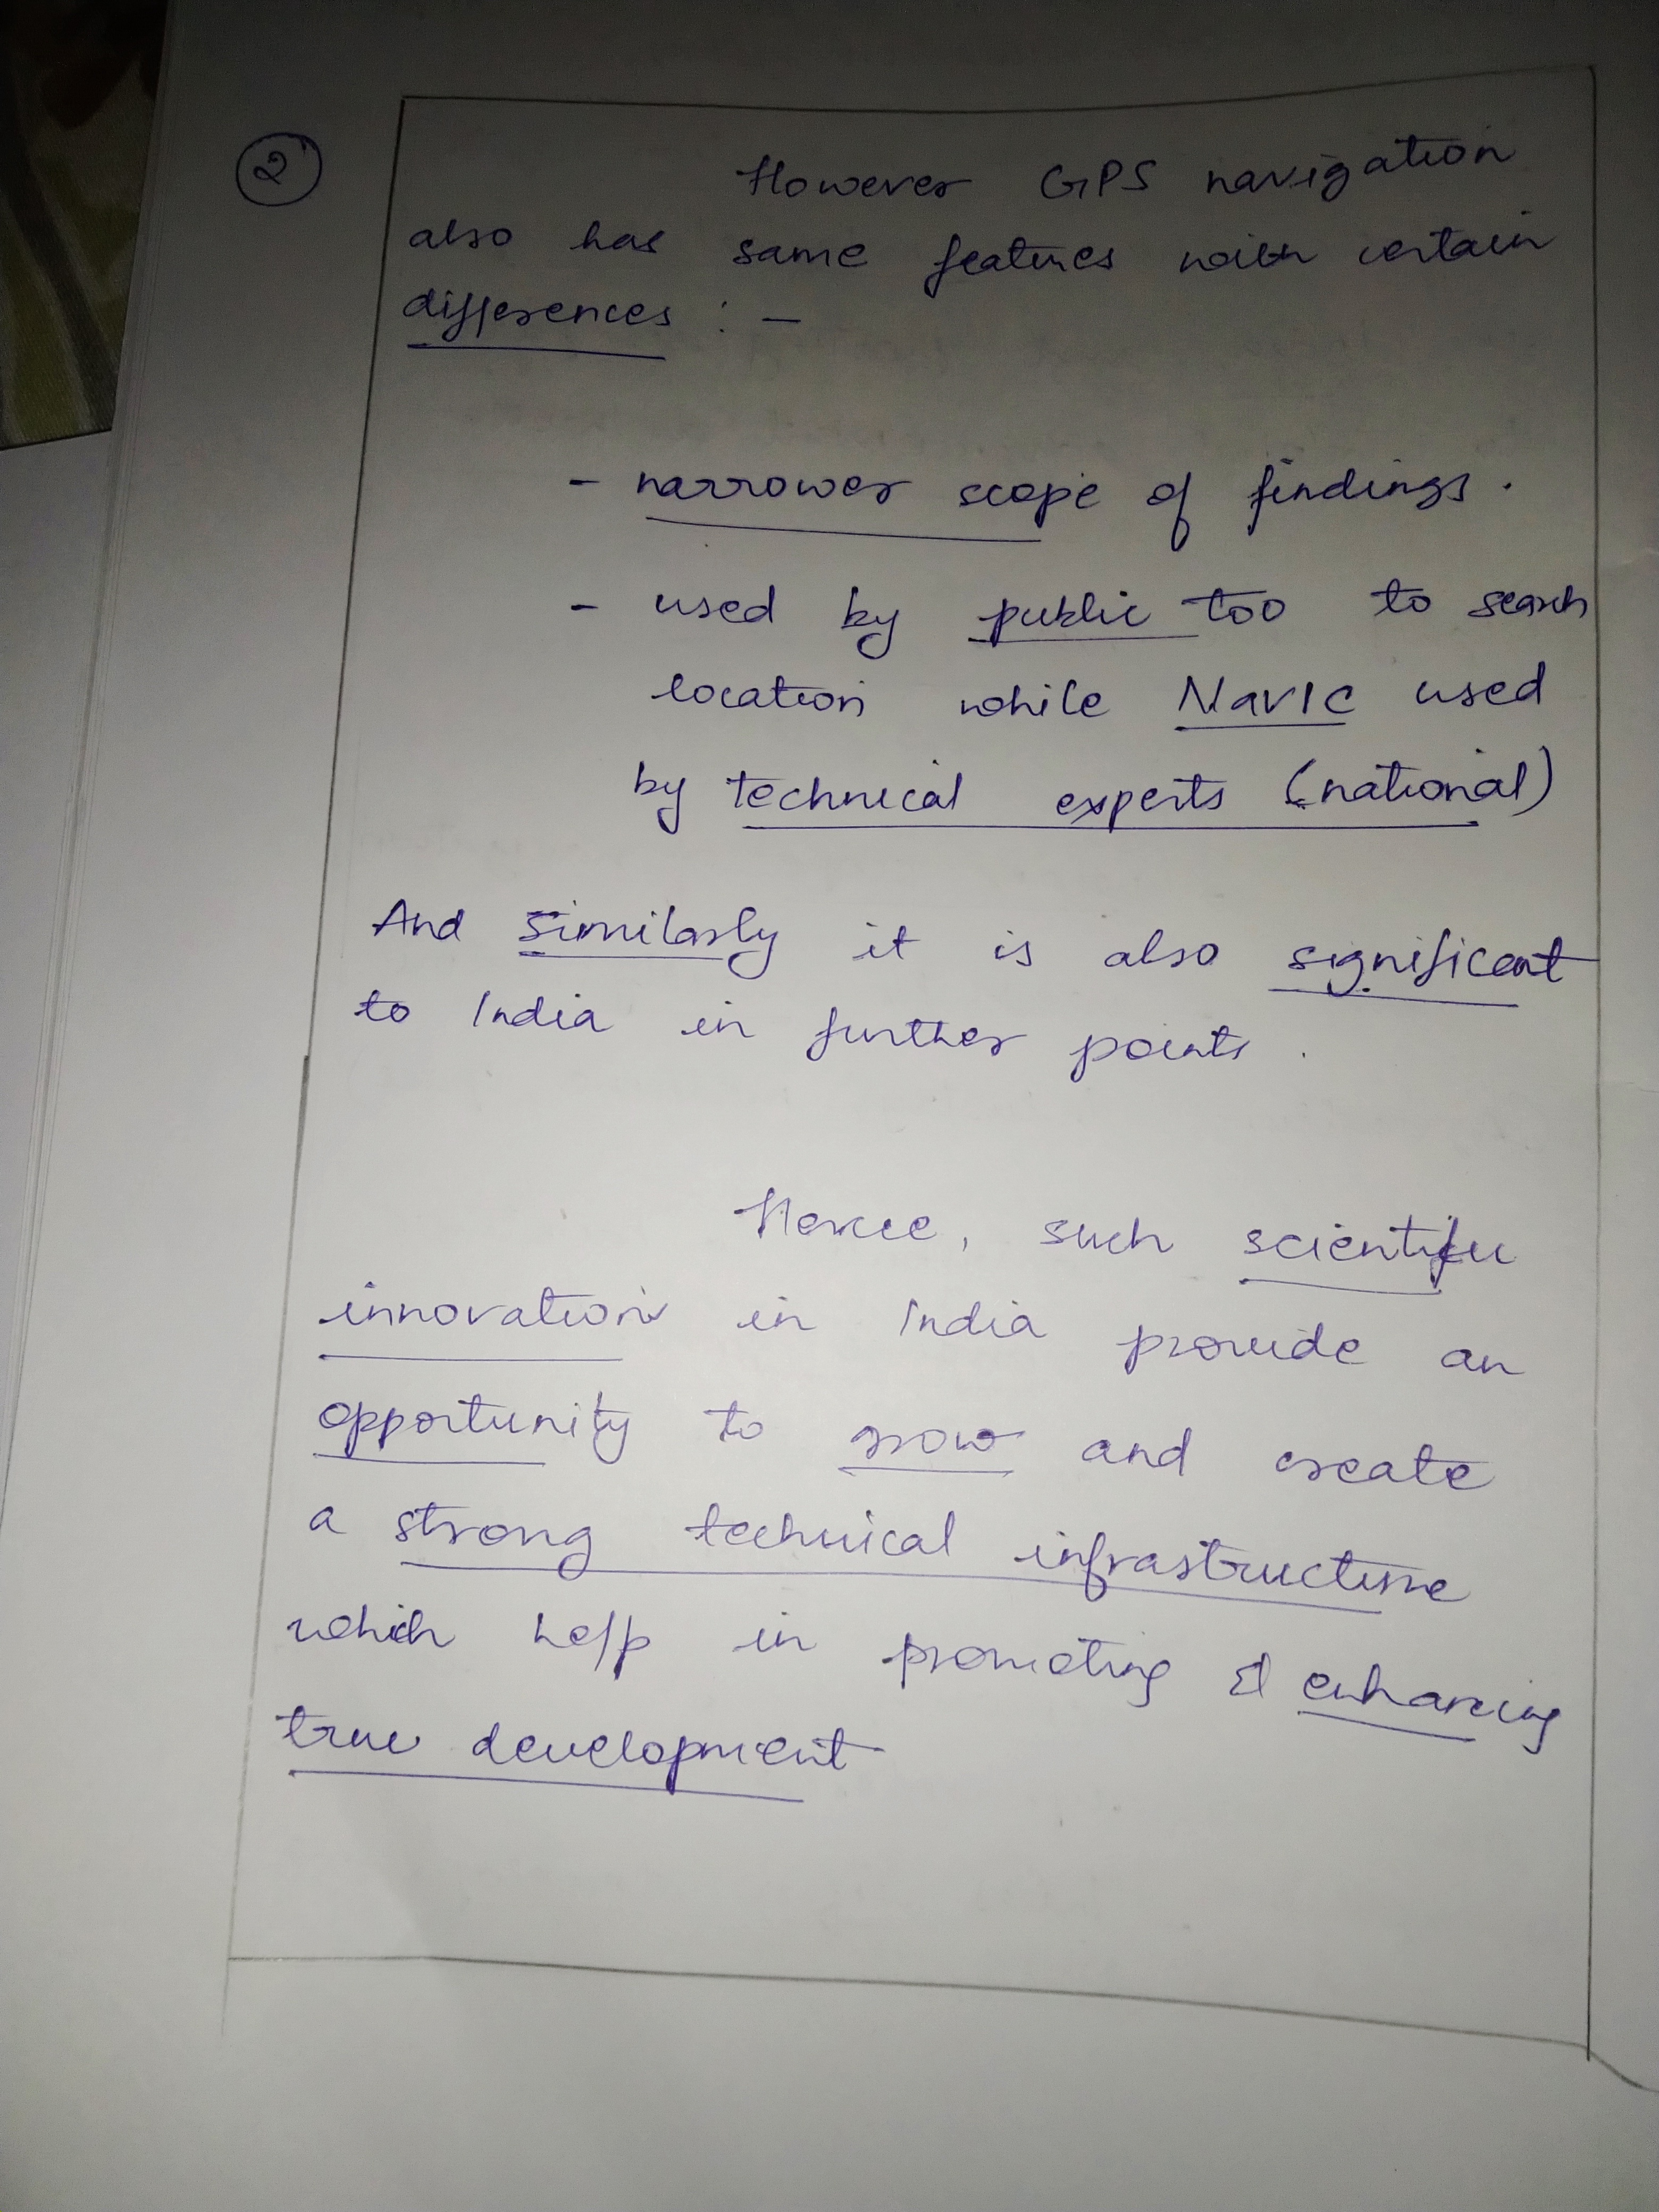 2
However GPS navigation
also has same features with certain
differences : -
- narrower scope of findings .
- used by public too to search
location while NavIC used
by technical experts (national)
And similarly it is also significant
to India in further points .
Hence, such scientific
innovation in India provide an
opportunity to grow and create
a strong technical infrastructure
which help in promoting & enhancing
true development